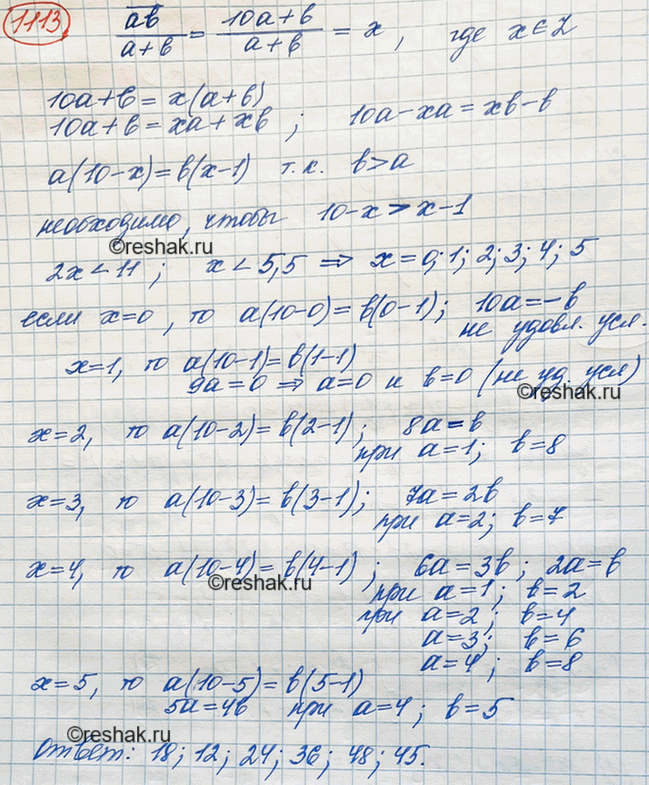 1113
ab/(a+b) = (10a+b)/(a+b) = x, где x∈Z
10a+b=x(a+b)
10a+b=xa+xb; 10a-xa=xb-b
a(10-x)=b(x-1) т.к. b>a
необходимо, чтобы 10-x>x-1
©reshak.ru
2x<11; x<5,5 ⇒ x=0;1;2;3;4;5
если x=0, то a(10-0)=b(0-1); 10a=-b
не удовл. усл.
x=1, то a(10-1)=b(1-1)
9a=0 ⇒ a=0 и b=0 (не уд. усл)
x=2, то a(10-2)=b(2-1); 8a=b
при a=1; b=8
x=3, то a(10-3)=b(3-1); 7a=2b
при a=2; b=7
x=4, то a(10-4)=b(4-1); 6a=3b; 2a=b
©reshak.ru
при a=1; b=2
при a=2; b=4
a=3; b=6
a=4; b=8
x=5, то a(10-5)=b(5-1)
5a=4b при a=4; b=5
©reshak.ru
Ответ: 18; 12; 24; 36; 48; 45.